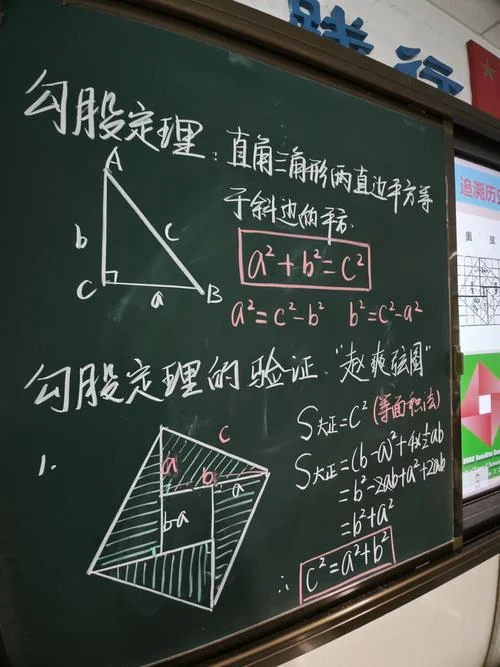 践行
勾股定理:直角三角形两直边平方等
于斜边的平方.
A
b
c
C
a
B
a²+b²=c²
a²=c²-b² b²=c²-a²
勾股定理的验证:“赵爽弦图”
1.
c
a
b
a
b-a
S大正=c²(等面积法)
S大正=(b-a)²+4×½ab
=b²-2ab+a²+2ab
=b²+a²
∴ c²=a²+b²
追溯历史
弦